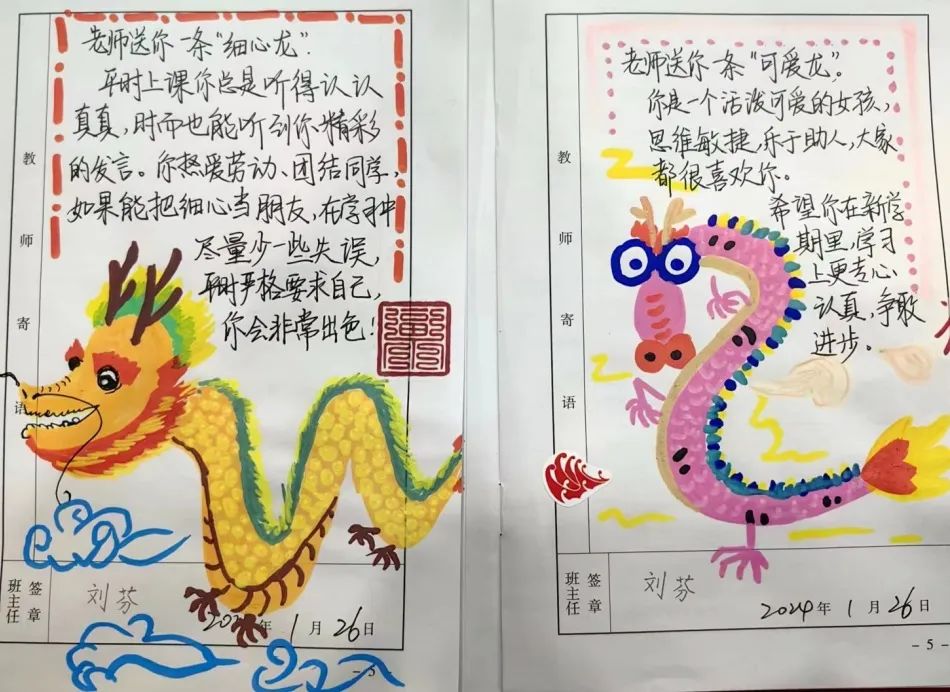 老师送你一条“细心龙”.
平时上课你总是听得认认
真真，时而也能听到你精彩
的发言。你热爱劳动、团结同学，
如果能把细心当朋友，在学习中
尽量少一些失误，
平时严格要求自己，
你会非常出色！
教师寄语
班主任签章
刘芬
年1月26日
老师送你一条“可爱龙”。
你是一个活泼可爱的女孩，
思维敏捷，乐于助人，大家
都很喜欢你。
希望你在新学
期里，学习
上更专心、
认真，争取
进步。
教师寄语
班主任签章
刘芬
2024年1月26日
- 5 -